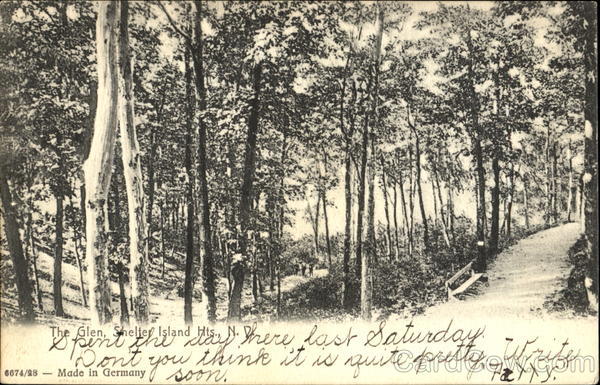 The Glen, Shelter Island Hts., N. Y.
Spent the day here last Saturday.
Don't you think it is quite pretty. Write
soon.
6674/28 - Made in Germany
CardCow.com